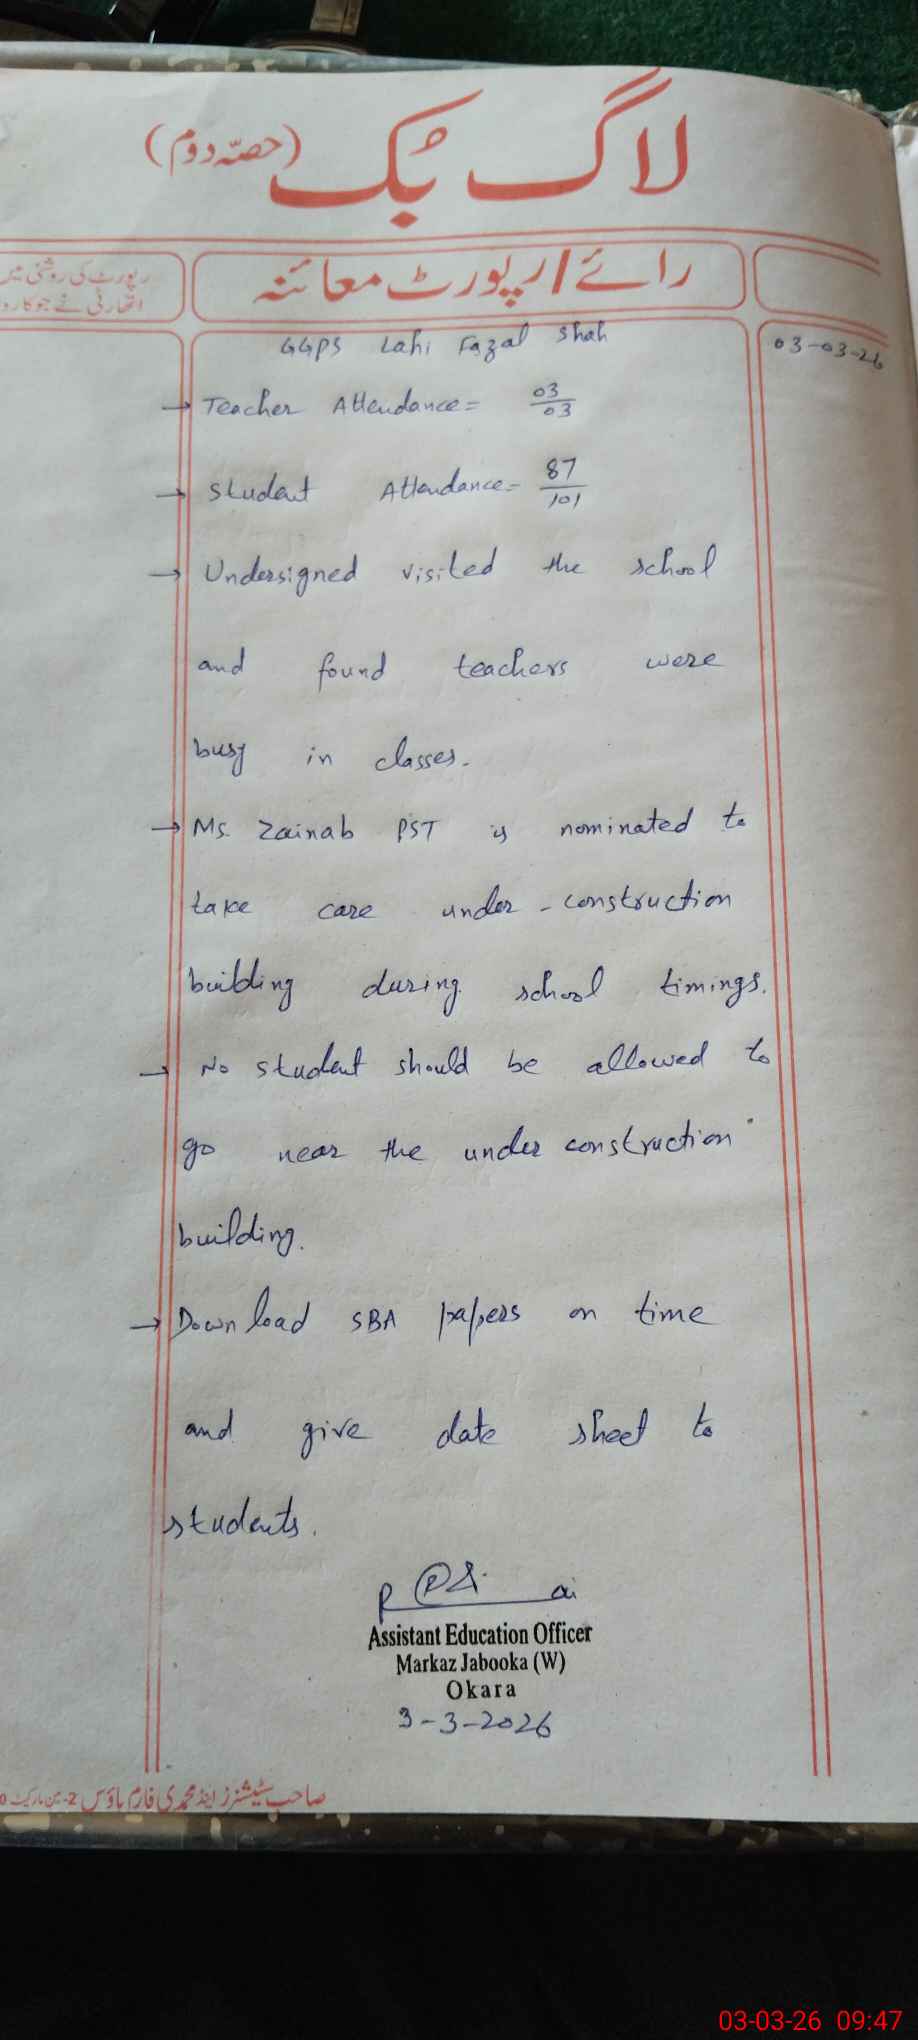 لاگ بُک (حصّہ دوم)
رائے / رپورٹ معائنہ
رپورٹ کی روشنی میں
اتھارٹی نے جو کارو
03-03-26
GGPS Lahi Fazal Shah
→ Teacher Attendance = 03/03
→ Student Attendance = 87/101
→ Undersigned visited the school
and found teachers were
busy in classes.
→ Ms. Zainab PST is nominated to
take care under-construction
building during school timings.
→ No student should be allowed to
go near the under construction
building.
→ Download SBA papers on time
and give date sheet to
students.
Assistant Education Officer
Markaz Jabooka (W)
Okara
3-3-2026
صاحب سٹیشنرز اینڈ محمدی فارم ہاؤس 2-مین مارکیٹ
03-03-26 09:47